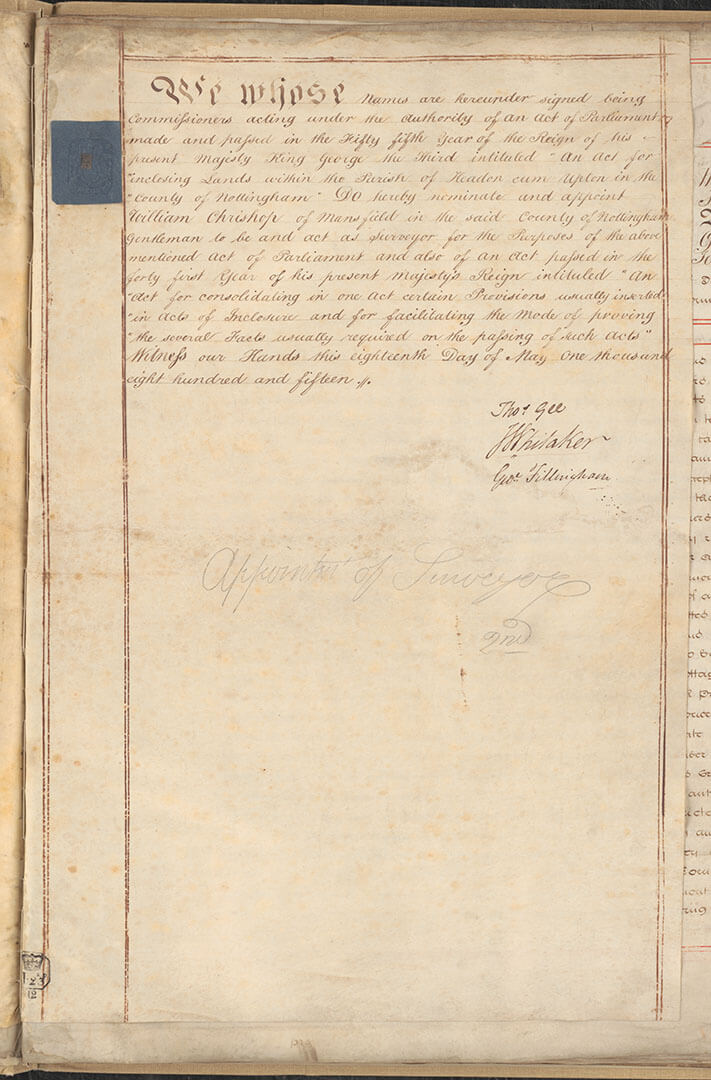 We whose Names are hereunder signed being
Commissioners acting under the Authority of an Act of Parliament
made and passed in the Fifty fifth Year of the Reign of his
present Majesty King George the Third intituled "An Act for
"inclosing Lands within the Parish of Headon cum Upton in the
"County of Nottingham" Do hereby nominate and appoint
William Chrishop of Mansfield in the said County of Nottingham
Gentleman to be and act as Surveyor for the Purposes of the above
mentioned Act of Parliament and also of an Act passed in the
forty first Year of his present Majesty's Reign intituled "An
"Act for consolidating in one Act certain Provisions usually inserted
"in Acts of Inclosure and for facilitating the Mode of proving
"the several Facts usually required on the passing of such Acts"
Witness our Hands this eighteenth Day of May One thousand
eight hundred and fifteen
Thos. Gee
J Whitaker
Geo. Fillingham
Appointmt of Surveyor
2nd